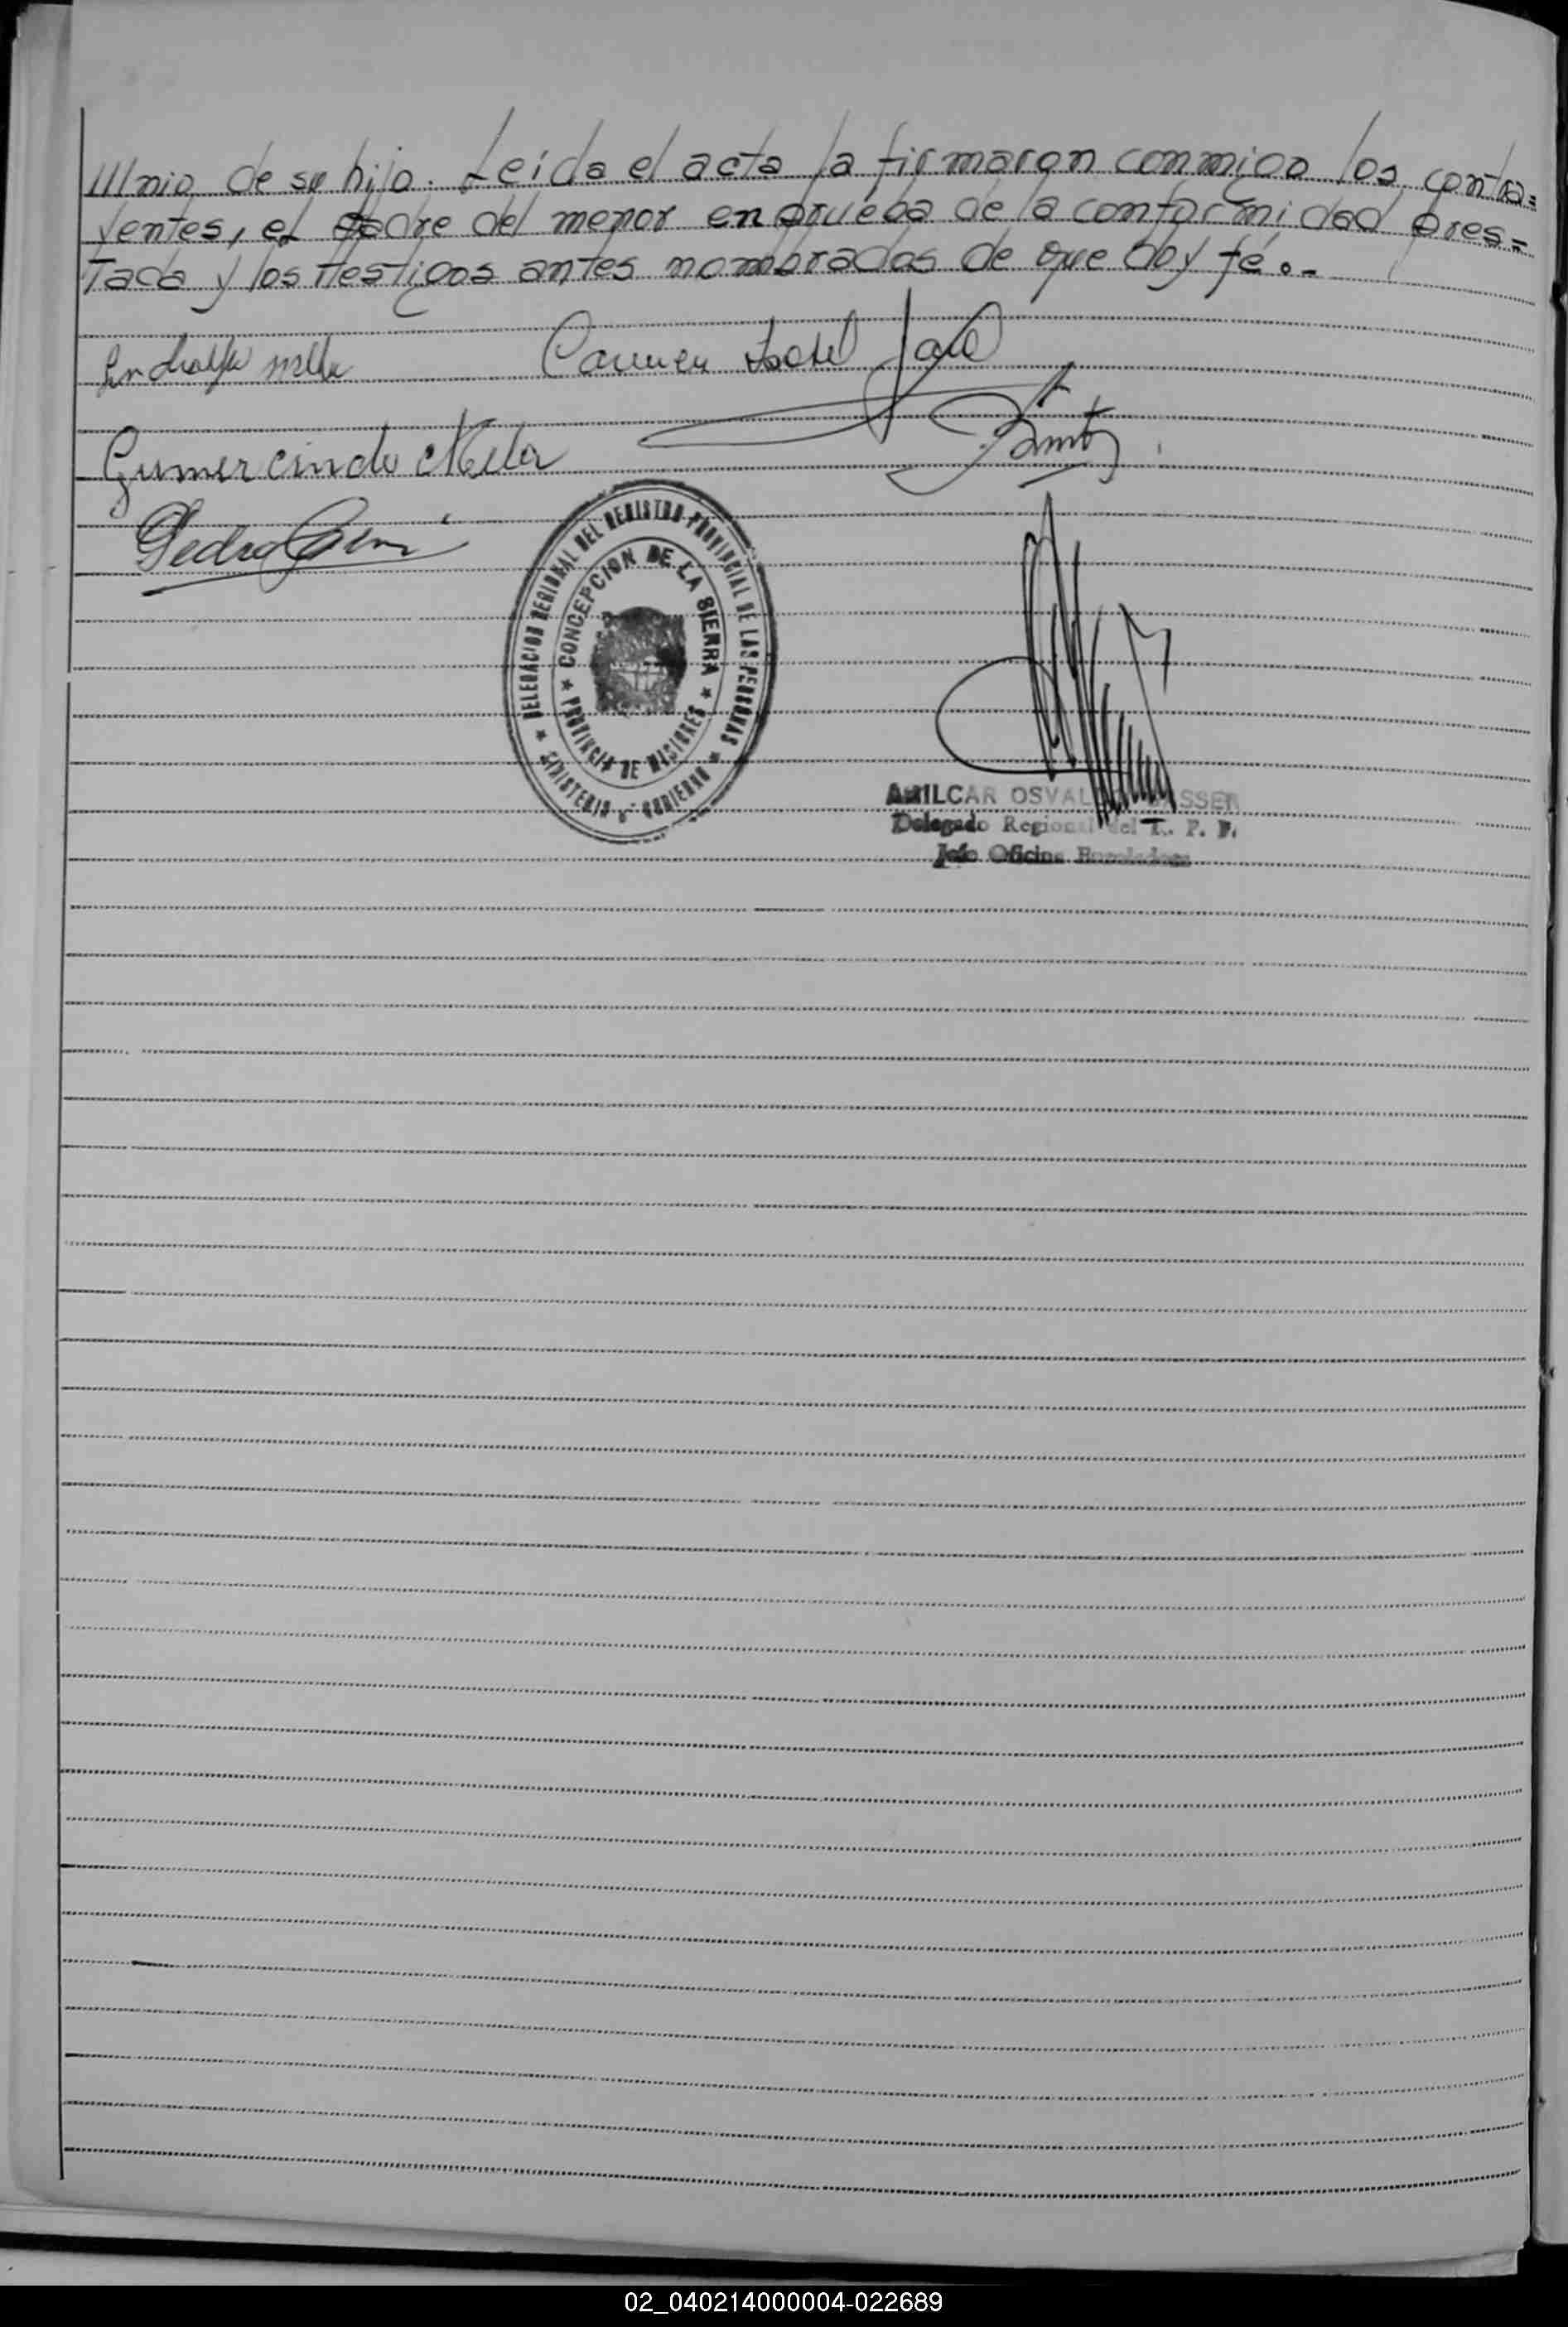 ///nio de su hijo. Leída el acta la firmaron conmigo los contra=
yentes, el padre del menor en prueba de la conformidad pres=
tada y los testigos antes nombrados de que doy fé.-
Carmen Isabel
Gumercindo Mello
Pedro
DELEGACION REGIONAL DEL REGISTRO PROVINCIAL DE LAS PERSONAS
★ MINISTERIO DE GOBIERNO ★
CONCEPCION DE LA SIERRA
★ PROVINCIA DE MISIONES ★
AMILCAR OSVALDO
Delegado Regional del R. P. P.
Jefe Oficina Enroladora
02_040214000004-022689